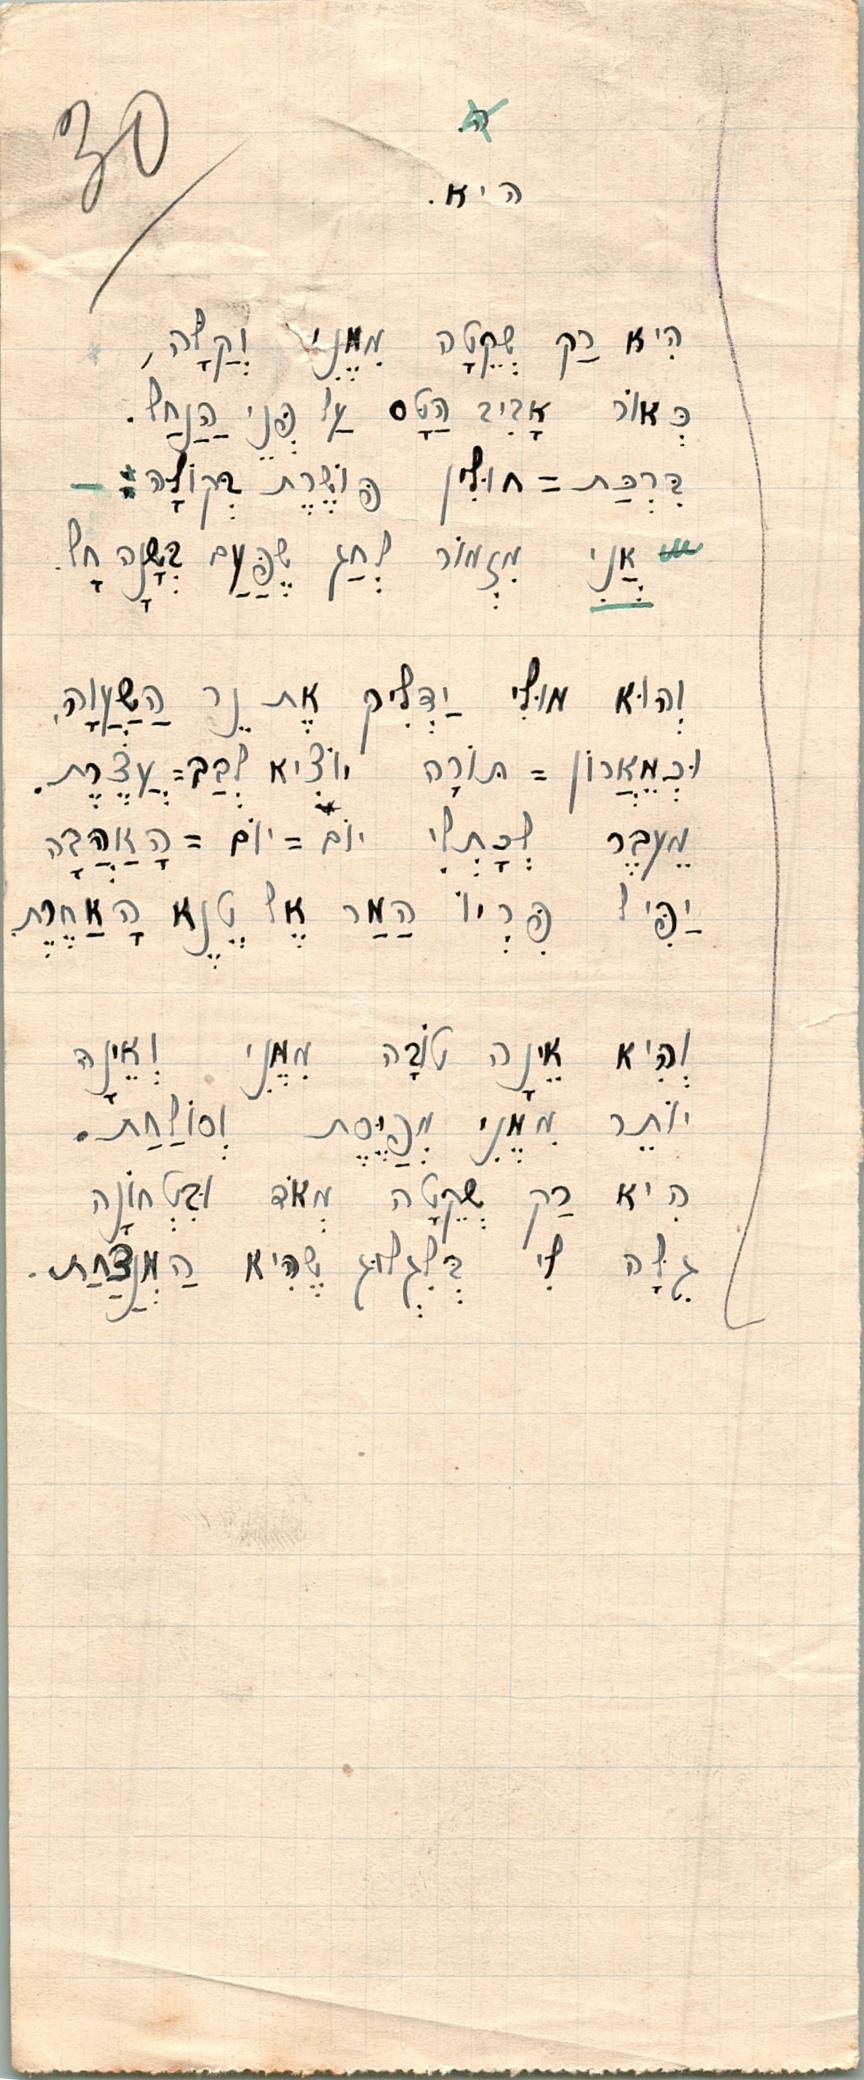 30
ה.
היא.
הִיא רַק שְׁקֵטָה מִמֶּנִּי וְקַלָּה,
כְּאוֹר אָבִיב הַטָּס עַל פְּנֵי הַנַּחַל.
בִּרְכַּת=חוּלִין פּוֹשֶׁרֶת בְּקוֹלָהּ –
אֲנִי מִזְמוֹר לְחַג שֶׁפַּעַם בְּשָׁנָה חָל.
וְהוּא מוּלִי יַדְלִיק אֶת נֵר הַשַּׁעֲוָה,
וּכְמֵאֲרוֹן=תּוֹרָה יוֹצִיא לְבַב=עֲצֶרֶת.
מֵעֵבֶר לְכָתְלִי יוֹם=יוֹם=הָאַהֲבָה
יַפִּיל פִּרְיוֹ הַמַּר אֶל טֶנֶא הָאַחֶרֶת.
וְהִיא אֵינָהּ טוֹבָה מִמֶּנִּי וְאֵינָהּ
יוֹתֵר מִמֶּנִּי מְפַיֶּסֶת וְסוֹלַחַת.
הִיא רַק שְׁקֵטָה מְאֹד וּבִטְחוֹנָהּ
גִּלָּה לִי בְּלִגְלוּג שֶׁהִיא הַמְנַצַּחַת.